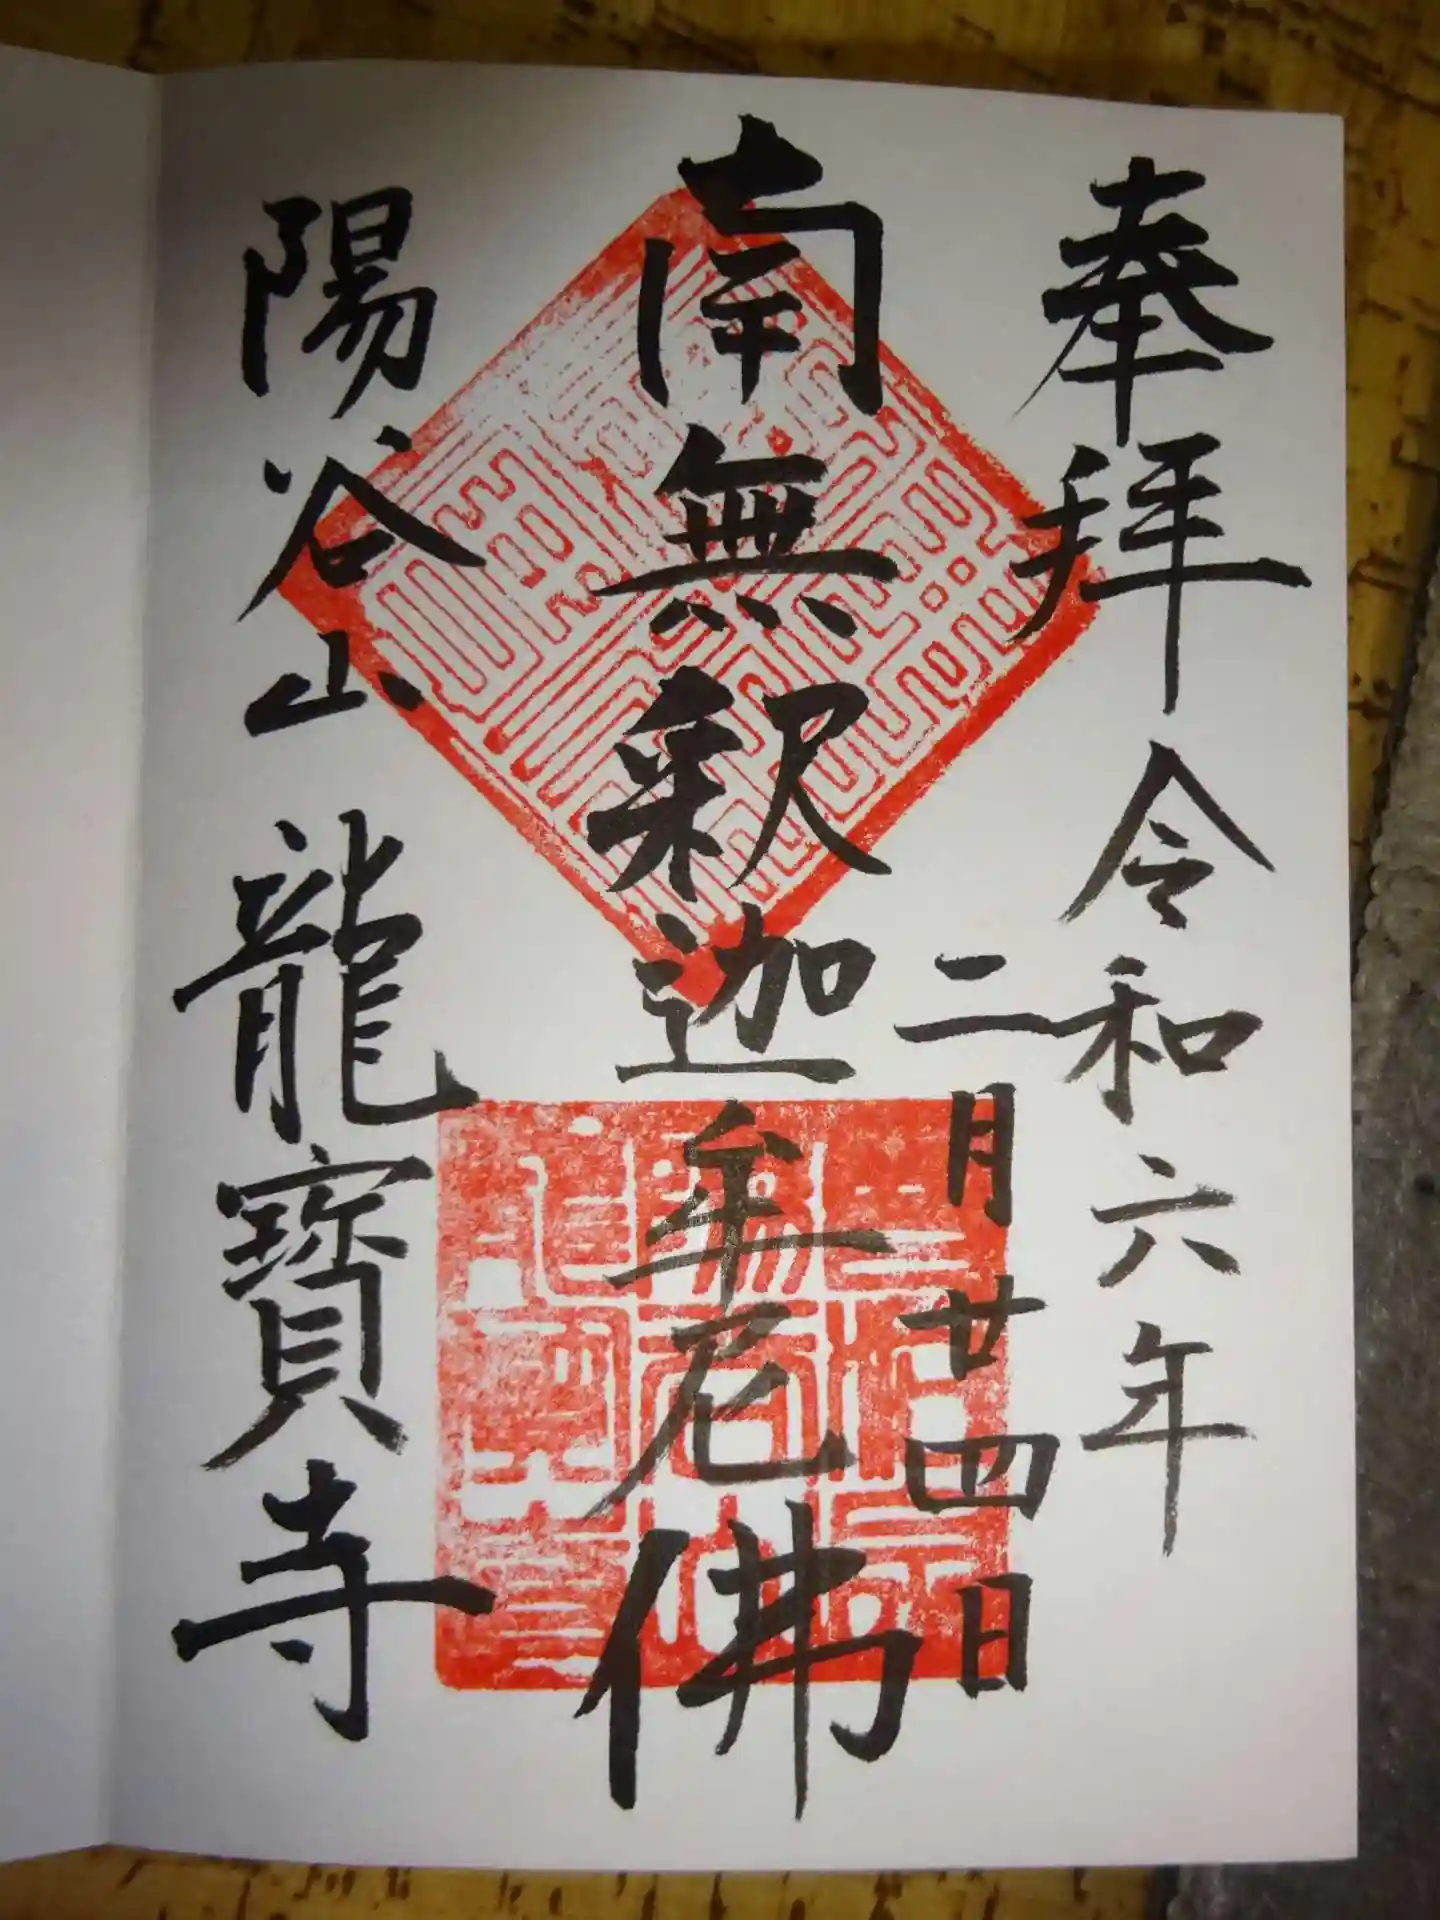 奉拝
令和六年
二月廿四日
南無釈迦牟尼佛
陽谷山
龍寳寺